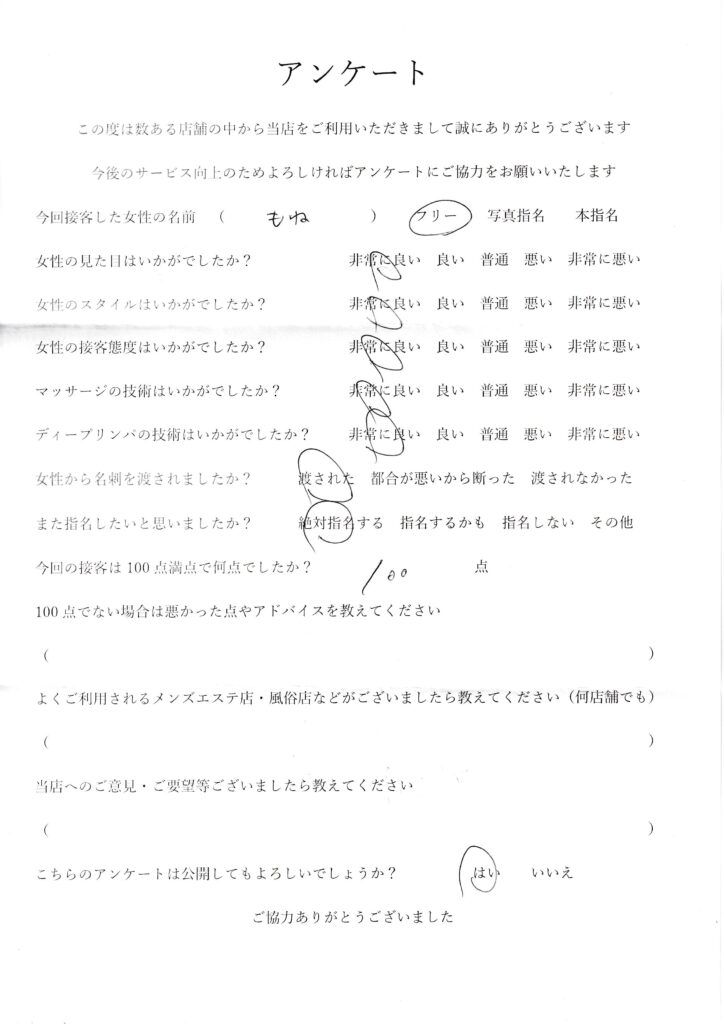 アンケート
この度は数ある店舗の中から当店をご利用いただきまして誠にありがとうございます
今後のサービス向上のためよろしければアンケートにご協力をお願いいたします
今回接客した女性の名前 ( もね ) フリー 写真指名 本指名
女性の見た目はいかがでしたか? 非常に良い 良い 普通 悪い 非常に悪い
女性のスタイルはいかがでしたか? 非常に良い 良い 普通 悪い 非常に悪い
女性の接客態度はいかがでしたか? 非常に良い 良い 普通 悪い 非常に悪い
マッサージの技術はいかがでしたか? 非常に良い 良い 普通 悪い 非常に悪い
ディープリンパの技術はいかがでしたか? 非常に良い 良い 普通 悪い 非常に悪い
女性から名刺を渡されましたか? 渡された 都合が悪いから断った 渡されなかった
また指名したいと思いましたか? 絶対指名する 指名するかも 指名しない その他
今回の接客は 100 点満点で何点でしたか? 100 点
100 点でない場合は悪かった点やアドバイスを教えてください
( )
よくご利用されるメンズエステ店・風俗店などがございましたら教えてください (何店舗でも)
( )
当店へのご意見・ご要望等ございましたら教えてください
( )
こちらのアンケートは公開してもよろしいでしょうか? はい いいえ
ご協力ありがとうございました